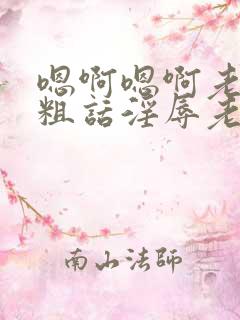 嗯啊嗯啊老
粗话淫辱老
南山法师